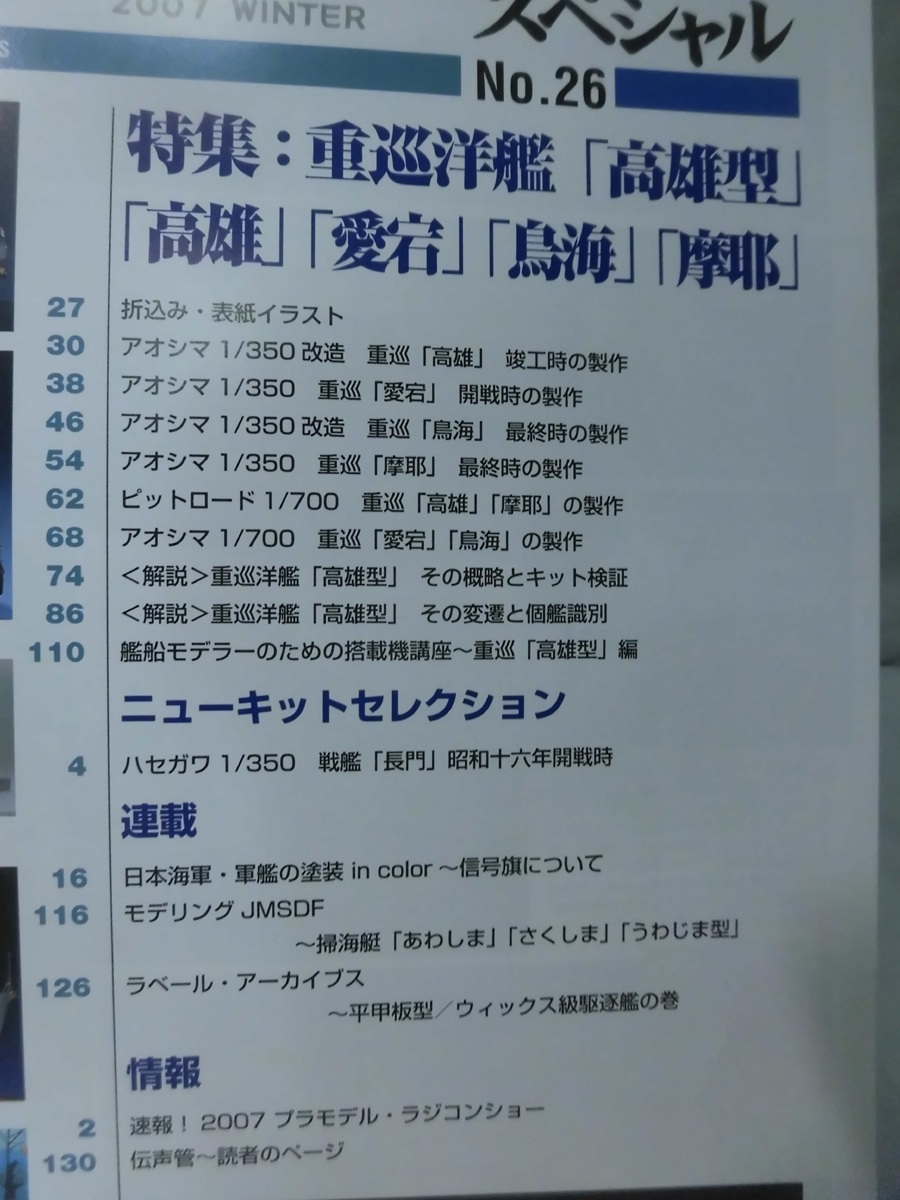 2007 WINTER
スペシャル
No.26
特集：重巡洋艦「高雄型」
「高雄」「愛宕」「鳥海」「摩耶」
27 折込み・表紙イラスト
30 アオシマ 1/350 改造　重巡「高雄」　竣工時の製作
38 アオシマ 1/350　重巡「愛宕」　開戦時の製作
46 アオシマ 1/350 改造　重巡「鳥海」　最終時の製作
54 アオシマ 1/350　重巡「摩耶」　最終時の製作
62 ピットロード 1/700　重巡「高雄」「摩耶」の製作
68 アオシマ 1/700　重巡「愛宕」「鳥海」の製作
74 ＜解説＞重巡洋艦「高雄型」　その概略とキット検証
86 ＜解説＞重巡洋艦「高雄型」　その変遷と個艦識別
110 艦船モデラーのための搭載機講座～重巡「高雄型」編
ニューキットセレクション
4 ハセガワ 1/350　戦艦「長門」昭和十六年開戦時
連載
16 日本海軍・軍艦の塗装 in color ～信号旗について
116 モデリング JMSDF
～掃海艇「あわしま」「さくしま」「うわじま型」
126 ラベール・アーカイブス
～平甲板型／ウィックス級駆逐艦の巻
情報
2 速報！ 2007 プラモデル・ラジコンショー
130 伝声管～読者のページ